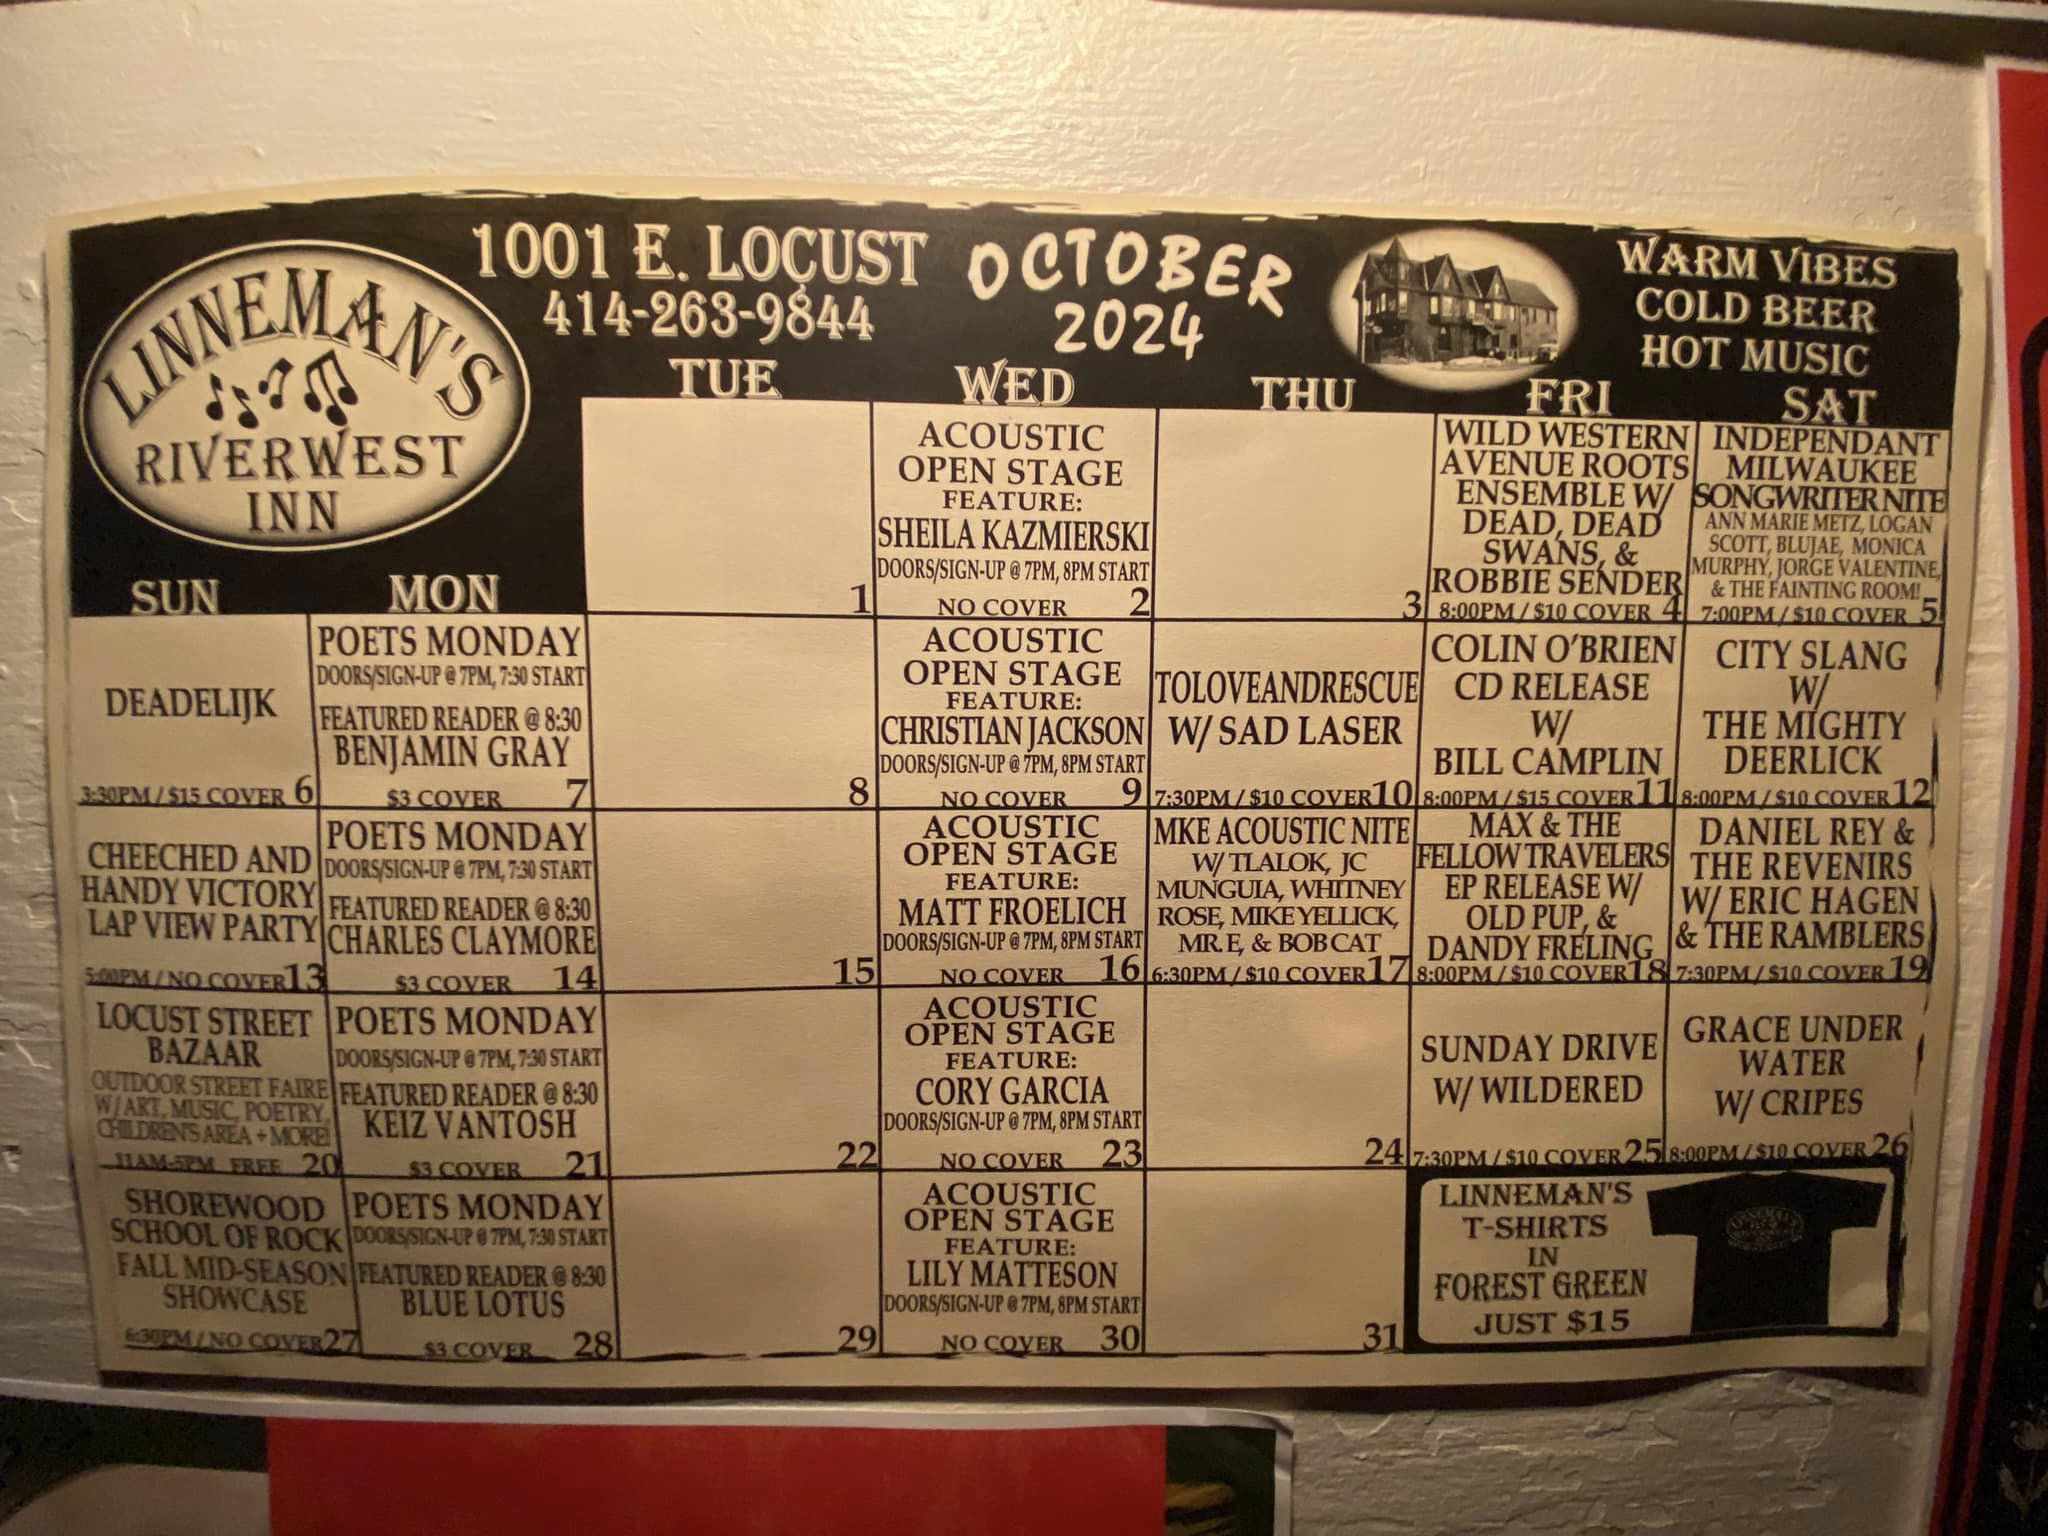 LINNEMAN'S
RIVERWEST
INN
1001 E. LOCUST
414-263-9844
OCTOBER
2024
WARM VIBES
COLD BEER
HOT MUSIC
SUN
MON
TUE
WED
THU
FRI
SAT
1
ACOUSTIC
OPEN STAGE
FEATURE:
SHEILA KAZMIERSKI
DOORS/SIGN-UP @ 7PM, 8PM START
NO COVER 2
3
WILD WESTERN
AVENUE ROOTS
ENSEMBLE W/
DEAD, DEAD
SWANS, &
ROBBIE SENDER
8:00PM / $10 COVER 4
INDEPENDANT
MILWAUKEE
SONGWRITER NITE
ANN MARIE METZ, LOGAN
SCOTT, BLUJAE, MONICA
MURPHY, JORGE VALENTINE,
& THE FAINTING ROOM!
7:00PM / $10 COVER 5
DEADELIJK
3:30PM / $15 COVER 6
POETS MONDAY
DOORS/SIGN-UP @ 7PM, 7:30 START
FEATURED READER @ 8:30
BENJAMIN GRAY
$3 COVER 7
8
ACOUSTIC
OPEN STAGE
FEATURE:
CHRISTIAN JACKSON
DOORS/SIGN-UP @ 7PM, 8PM START
NO COVER 9
TOLOVEANDRESCUE
W/ SAD LASER
7:30PM / $10 COVER 10
COLIN O'BRIEN
CD RELEASE
W/
BILL CAMPLIN
8:00PM / $15 COVER 11
CITY SLANG
W/
THE MIGHTY
DEERLICK
8:00PM / $10 COVER 12
CHEECHED AND
HANDY VICTORY
LAP VIEW PARTY
5:00PM / NO COVER 13
POETS MONDAY
DOORS/SIGN-UP @ 7PM, 7:30 START
FEATURED READER @ 8:30
CHARLES CLAYMORE
$3 COVER 14
15
ACOUSTIC
OPEN STAGE
FEATURE:
MATT FROELICH
DOORS/SIGN-UP @ 7PM, 8PM START
NO COVER 16
MKE ACOUSTIC NITE
W/ TLALOK, JC
MUNGUIA, WHITNEY
ROSE, MIKE YELLICK,
MR. E, & BOB CAT
6:30PM / $10 COVER 17
MAX & THE
FELLOW TRAVELERS
EP RELEASE W/
OLD PUP, &
DANDY FRELING
8:00PM / $10 COVER 18
DANIEL REY &
THE REVENIRS
W/ ERIC HAGEN
& THE RAMBLERS
7:30PM / $10 COVER 19
LOCUST STREET
BAZAAR
OUTDOOR STREET FAIRE
W/ ART, MUSIC, POETRY,
CHILDREN'S AREA + MORE!
11AM-5PM FREE 20
POETS MONDAY
DOORS/SIGN-UP @ 7PM, 7:30 START
FEATURED READER @ 8:30
KEIZ VANTOSH
$3 COVER 21
22
ACOUSTIC
OPEN STAGE
FEATURE:
CORY GARCIA
DOORS/SIGN-UP @ 7PM, 8PM START
NO COVER 23
24
SUNDAY DRIVE
W/ WILDERED
7:30PM / $10 COVER 25
GRACE UNDER
WATER
W/ CRIPES
8:00PM / $10 COVER 26
SHOREWOOD
SCHOOL OF ROCK
FALL MID-SEASON
SHOWCASE
6:30PM / NO COVER 27
POETS MONDAY
DOORS/SIGN-UP @ 7PM, 7:30 START
FEATURED READER @ 8:30
BLUE LOTUS
$3 COVER 28
29
ACOUSTIC
OPEN STAGE
FEATURE:
LILY MATTESON
DOORS/SIGN-UP @ 7PM, 8PM START
NO COVER 30
31
LINNEMAN'S
T-SHIRTS
IN
FOREST GREEN
JUST $15